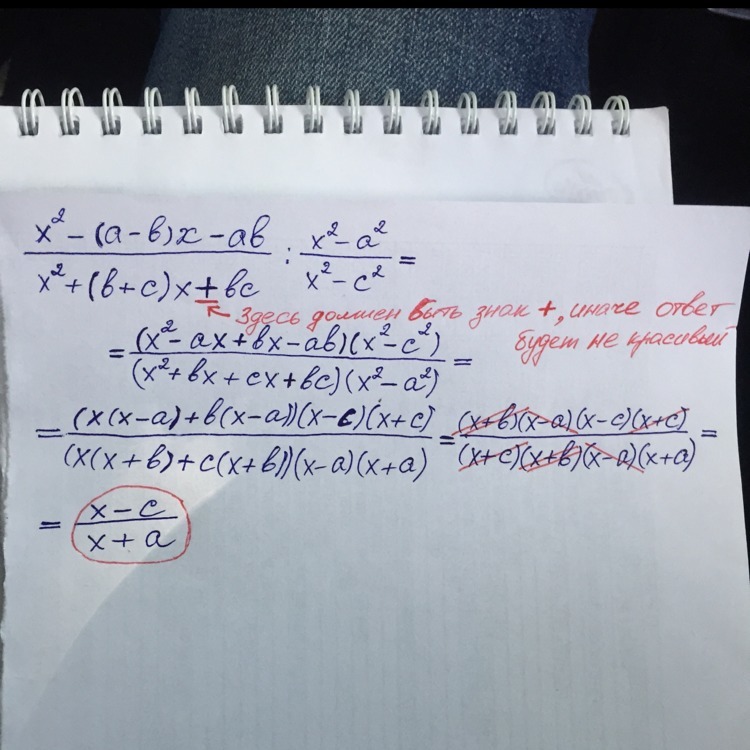 x² - (a - b)x - ab / x² + (b + c)x + bc : x² - a² / x² - c² =
← Здесь должен быть знак +, иначе ответ
будет не красивый
= (x² - ax + bx - ab)(x² - c²) / (x² + bx + cx + bc)(x² - a²) =
= (x(x - a) + b(x - a))(x - c)(x + c) / (x(x + b) + c(x + b))(x - a)(x + a) = (x + b)(x - a)(x - c)(x + c) / (x + c)(x + b)(x - a)(x + a) =
= x - c / x + a